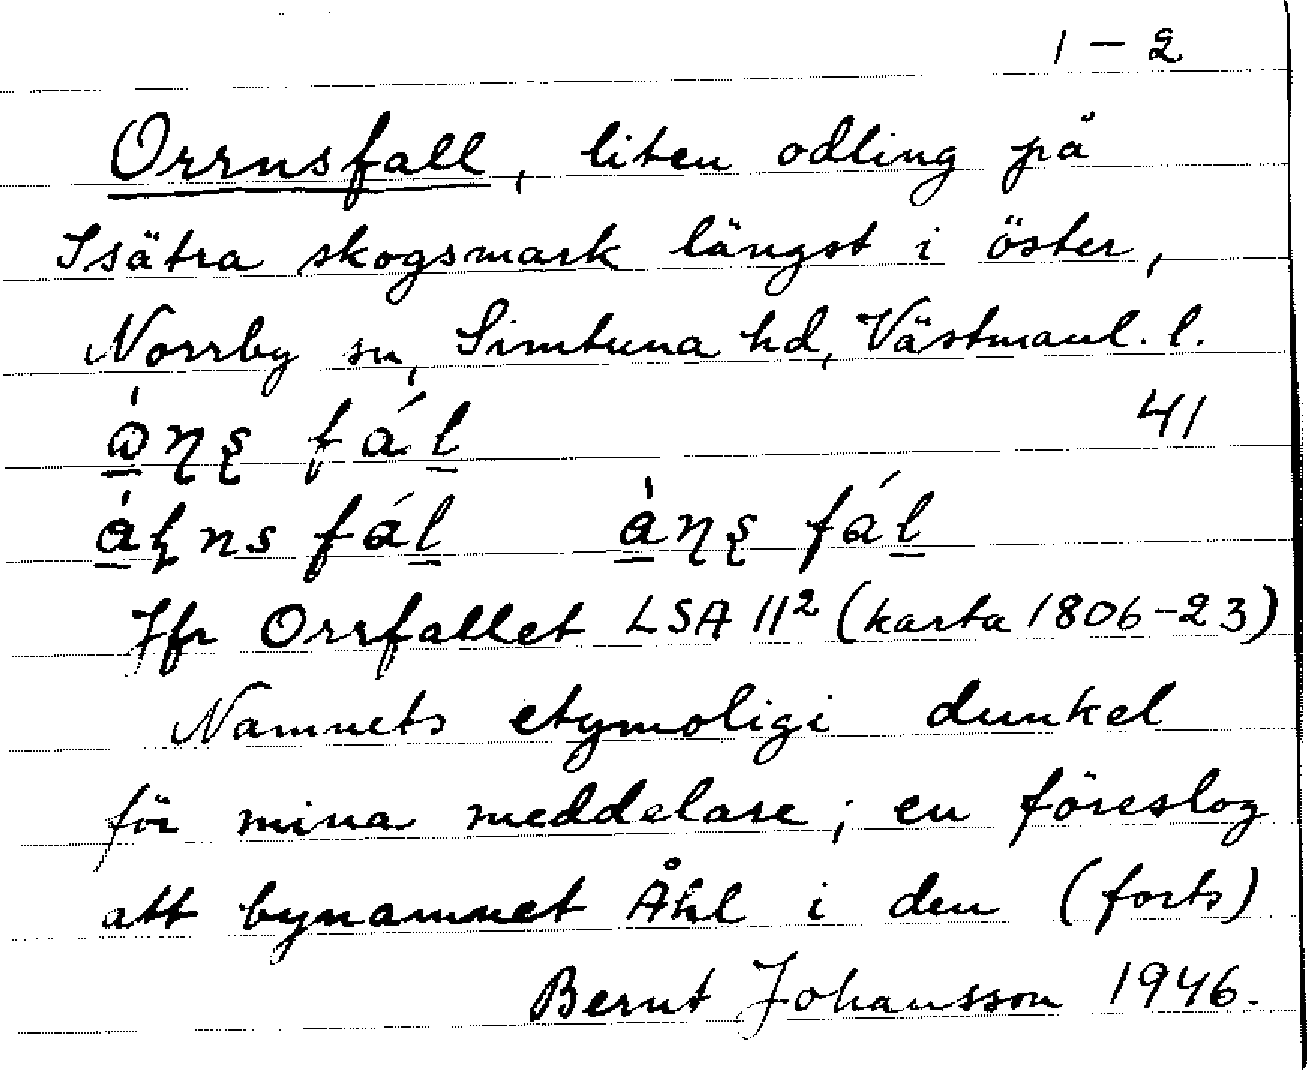 1 – 2
Orrnsfall, liten odling på
Isätra skogsmark längst i öster,
Norrby sn, Simtuna hd, Västmanl. l.
41
Jfr Orrfallet LSA 11² (karta 1806–23)
Namnets etymoligi dunkel
för mina meddelare; en föreslog
att bynamnet Åhl i den (forts)
Bernt Johansson 1946.